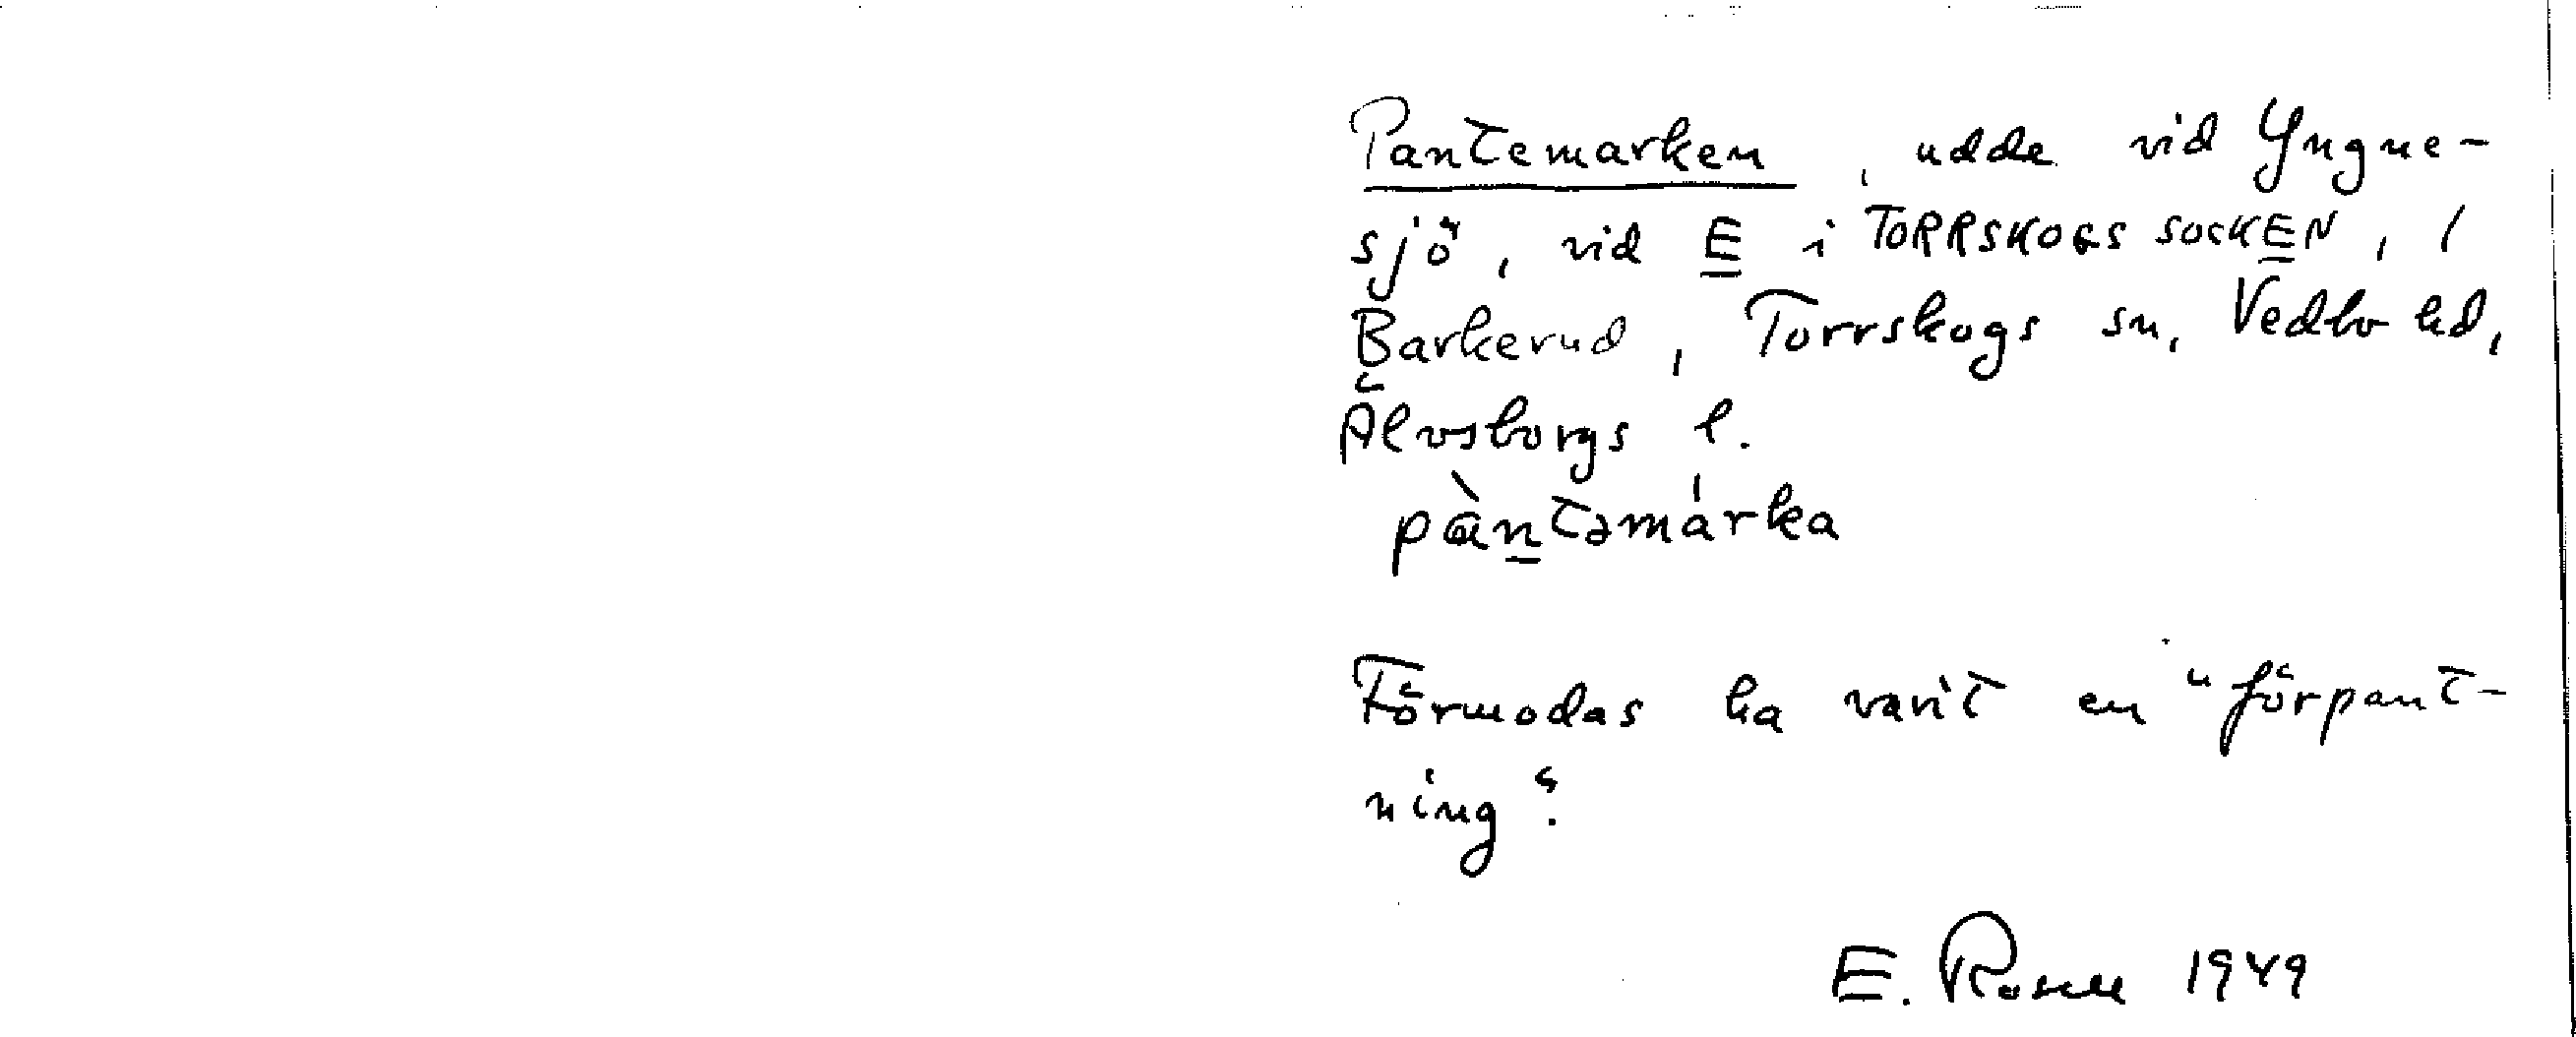 Pantemarken, udde vid Yngne-
sjö, vid E i TORRSKOGS SOCKEN, i
Barkerud, Torrskogs sn, Vedbo hd,
Älvsborgs l.
pàntəmárka
Förmodas ha varit en "förpant-
ning".
E. Rosell 1949